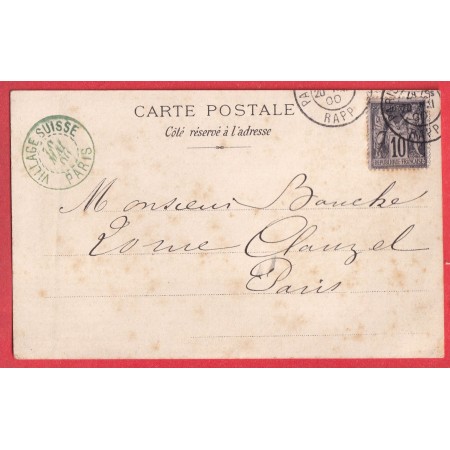 CARTE POSTALE
Côté réservé à l'adresse
VILLAGE SUISSE
PARIS
PA
20
00
RAPP
RAPP
10
REPUBLIQUE FRANÇAISE
Monsieur Bouche
Clauzel
Paris